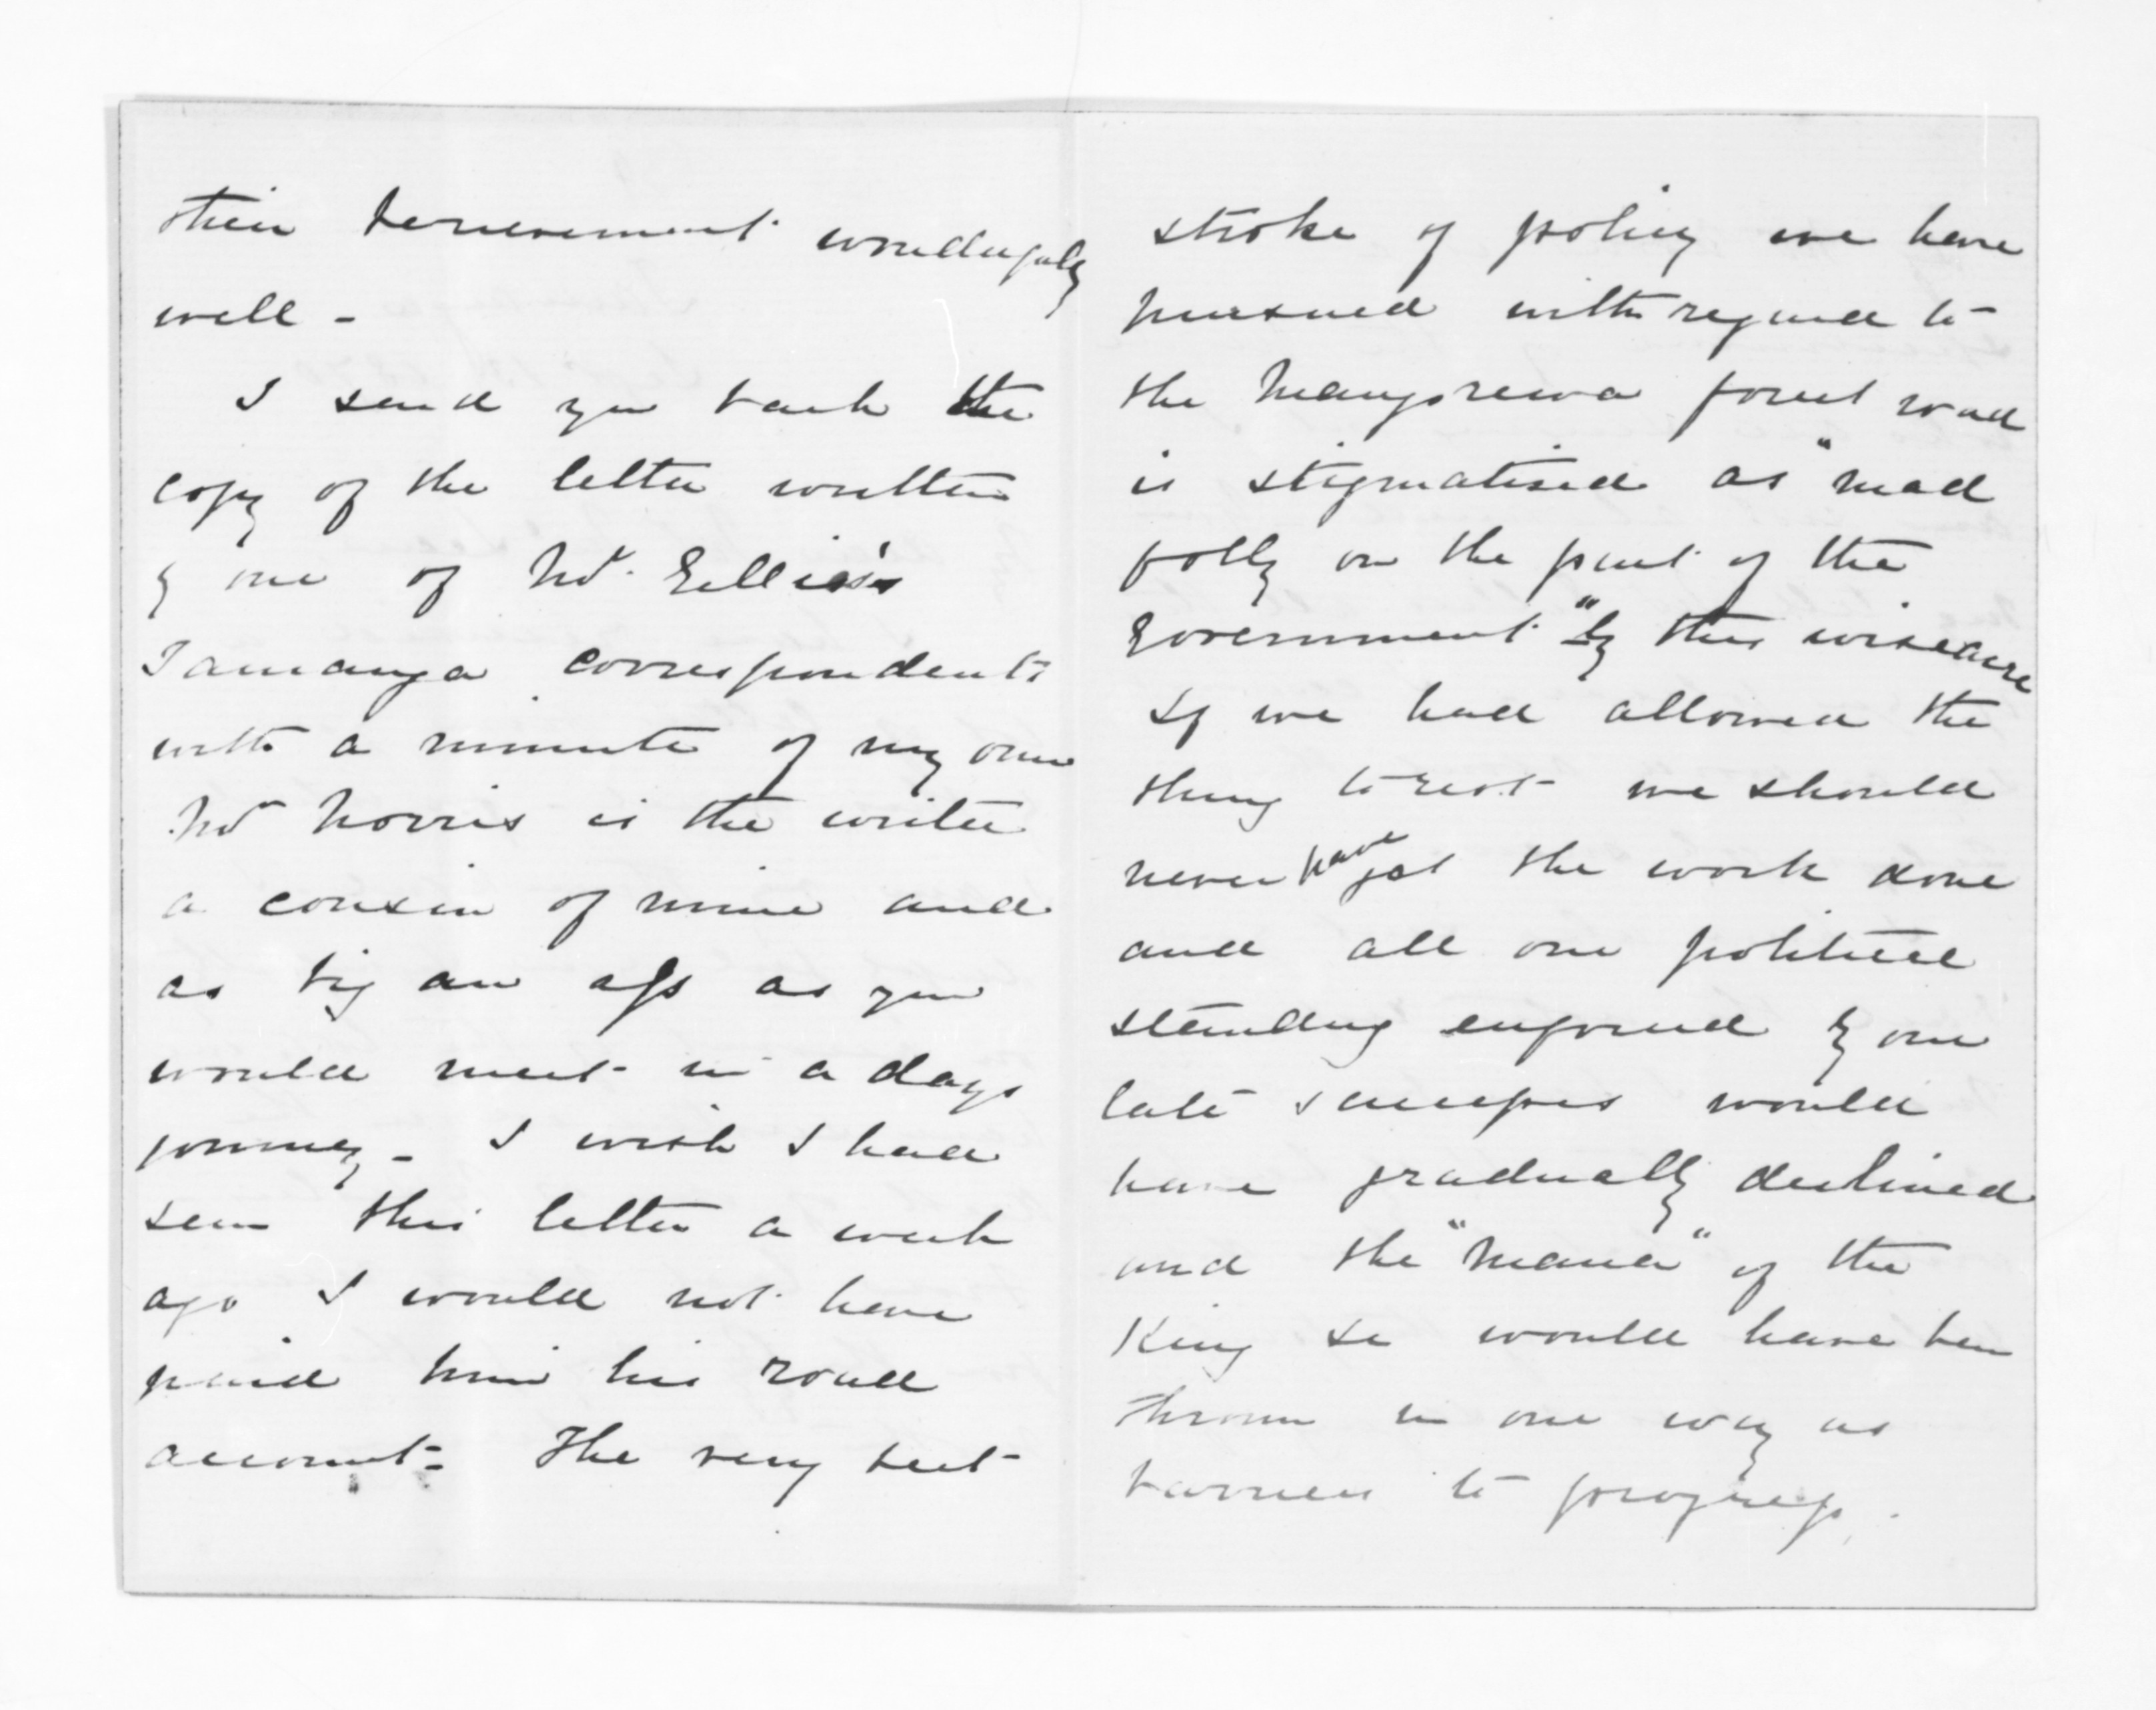 their bereavement wonderfully
well -
I send you back the
copy of the letter written
by one of Mr. Ellis's
Tauranga correspondents
with a minute of my own
Mr Norris is the writer
a cousin of mine and
as big an ass as you
would meet in a days
journey - I wish I had
seen this letter a week
ago I would not have
paid him his road
account - The very best
stroke of policy we have
pursued with regard to
the Mangorewa forest road
is stigmatised as "mad
folly on the part of the
Government" by this wiseacre
If we had allowed the
thing to rest we should
never have got the work done
and all our political
standing enforced by our
late successes would
have gradually declined
and the "mana" of the
King would have been
thrown in our way as
barriers to progress.